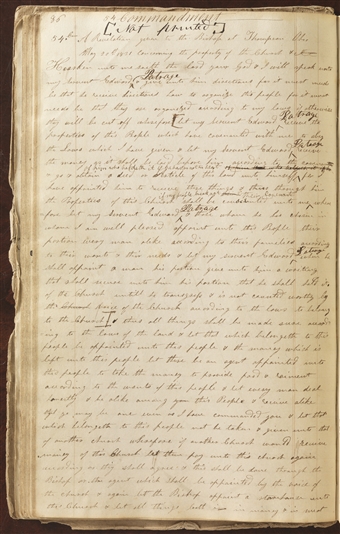 86 54 Commandment
[Not printed]
54th A Revelation given to the Bishop at Thompson Ohio
May 20th 1831 concerning the property of the Church
Hearken unto me saith the Lord your God & I will speak unto
my servent Edward Patrage & give unto him directions for it must needs
be that he receive directions how to organize this people for it must
needs be that they are organized according to my laws if otherwise
they will be cut off wherefore [let my servent Edward Patrage receive the
properties of this People which have covenanted with me to obey
the laws which I have given & let my servent Edward Patrage receive
the money as it shall be laid before him according to the covenant
& go & obtain a deed or Article of this land unto himself
I have appointed him to receive these things & thus through him
the Properties of this Church shall be consecrated unto me
fore let my servent Edward Patrage & those whom he has chosen in
whom I am well pleased appoint unto this People their
portion every man alike according to their families according
to their wants & their needs & let my servent Edward Patrage when he
shall appoint a man his portion give unto him a writing
that shall secure unto him his portion that he shall hold it
of the church until he transgress & is not counted worthy by
the voice of the Church according to the laws to belong
to the Church] & thus all things shall be made sure accor
ding to the laws of the land & let that which belongeth to this
people be appointed unto this people & the money which is
left unto this people let there be an agent appointed unto
this people to take the money to provide food & raiment
according to the wants of this people & let every man deal
honestly & be alike among this People & receive alike
that ye may be one even as I have commanded you & let that
which belongeth to this people not be taken & given unto that
of another church wherefore if another Church would receive
money of this Church let them pay unto this church again
according as they shall agree & this shall be done through the
Bishop or the agent which shall be appointed by the voice of
the church & again let the Bishop appoint a storehouse unto
this Church & let all things both in money & in meat